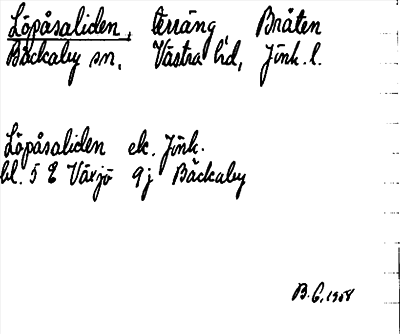 Löpåsaliden, terräng Bråten
Bäckaby sn, Västra hd, Jönk. l.
Löpåsaliden ek. Jönk.
bl. 5 E Växjö 9j Bäckaby
B.G. 1958